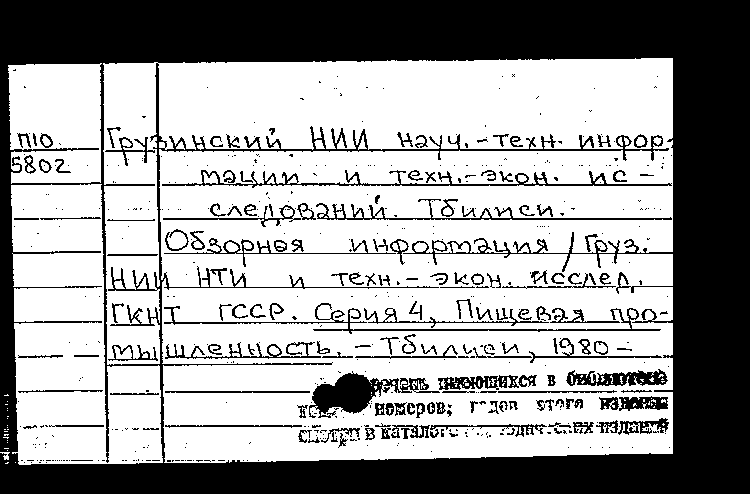 П10 Грузинский НИИ науч.-техн. инфор-
5802 мации и техн.-экон. ис-
следований. Тбилиси.
Обзорная информация / Груз.
НИИ НТИ и техн.-экон. исслед.
ГКНТ ГССР. Серия 4, Пищевая про-
мышленность. - Тбилиси, 1980-
имеющихся в библиотеке
номеров; годов этого издания
смотри в каталоге изданий